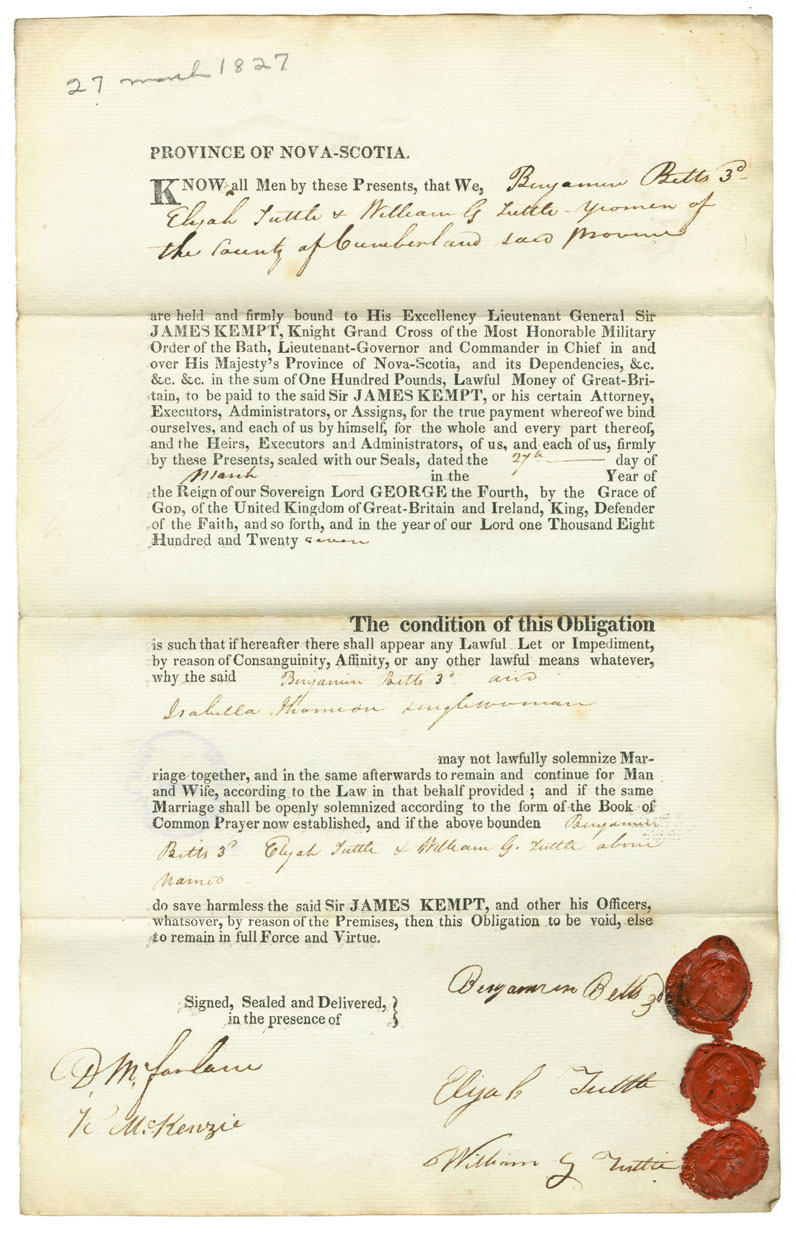 27 march 1827
PROVINCE OF NOVA-SCOTIA.
KNOW all Men by these Presents, that We, Benjamin Betts 3d
Elijah Tuttle & William G Tuttle - yeomen of
the County of Cumberland said Province
are held and firmly bound to His Excellency Lieutenant General Sir
JAMES KEMPT, Knight Grand Cross of the Most Honorable Military
Order of the Bath, Lieutenant-Governor and Commander in Chief in and
over His Majesty's Province of Nova-Scotia, and its Dependencies, &c.
&c. &c. in the sum of One Hundred Pounds, Lawful Money of Great-Bri-
tain, to be paid to the said Sir JAMES KEMPT, or his certain Attorney,
Executors, Administrators, or Assigns, for the true payment whereof we bind
ourselves, and each of us by himself, for the whole and every part thereof,
and the Heirs, Executors and Administrators, of us, and each of us, firmly
by these Presents, sealed with our Seals, dated the 27th day of
March in the Year of
the Reign of our Sovereign Lord GEORGE the Fourth, by the Grace of
GOD, of the United Kingdom of Great-Britain and Ireland, King, Defender
of the Faith, and so forth, and in the year of our Lord one Thousand Eight
Hundred and Twenty seven
The condition of this Obligation
is such that if hereafter there shall appear any Lawful Let or Impediment,
by reason of Consanguinity, Affinity, or any other lawful means whatever,
why the said Benjamin Betts 3d and
Isabella Thomson singlewoman
may not lawfully solemnize Mar-
riage together, and in the same afterwards to remain and continue for Man
and Wife, according to the Law in that behalf provided ; and if the same
Marriage shall be openly solemnized according to the form of the Book of
Common Prayer now established, and if the above bounden Benjamin
Betts 3d Elijah Tuttle & William G. Tuttle above
named
do save harmless the said Sir JAMES KEMPT, and other his Officers,
whatsover, by reason of the Premises, then this Obligation to be void, else
to remain in full Force and Virtue.
Benjamin Betts 3d
Signed, Sealed and Delivered, }
in the presence of
D McFarlane
Elijah Tuttle
K McKenzie
William G Tuttle